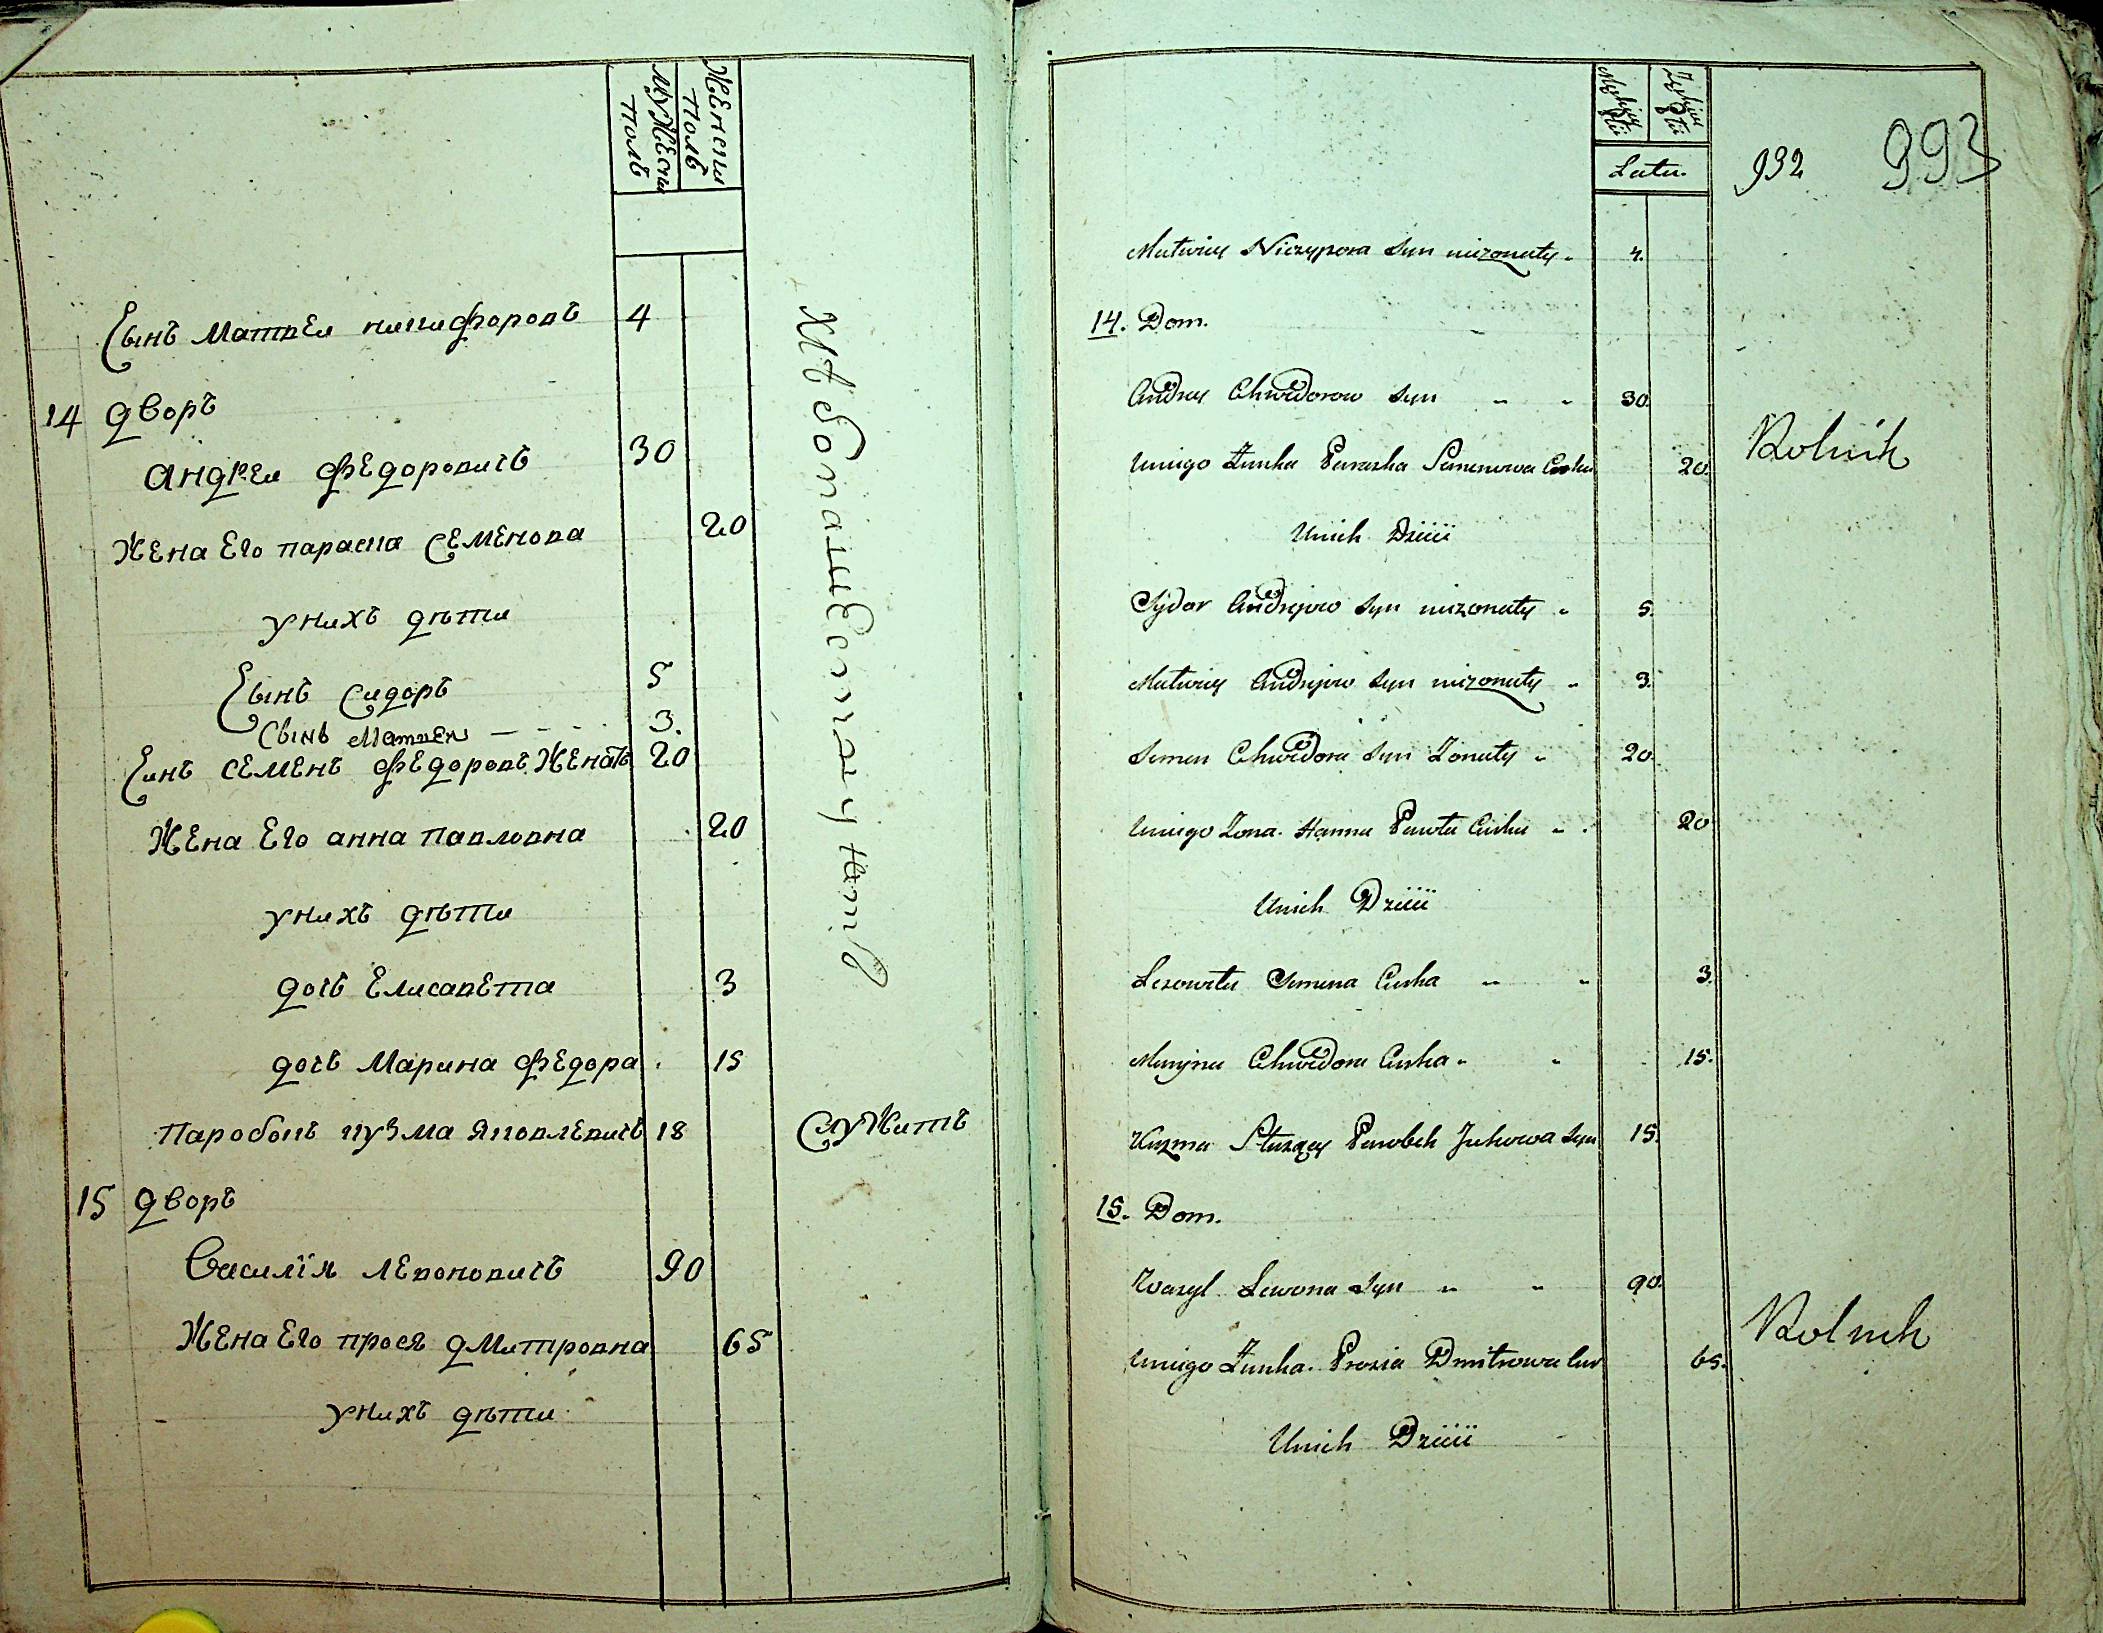 Женски Полъ
мужески Полъ
Сынъ матвеи никифоровъ 4
14 дворъ
андреи федоровичъ 30
жена его параска семенова 20
у нихъ дѣти
Сынъ сидоръ 5
Сынъ Матвеи — - - 3.
Синъ семенъ федоровъ женатъ 20
жена его анна павловна 20
у нихъ дѣти
дочъ елисавета 3
дочъ марина федора 15
паробокъ кузма яковлевичъ 18 служитъ
15 дворъ
Василій левоновичъ 90
жена его прося дмитровна 65
у нихъ дѣти
хлебопашествуютъ
Męzkiey Płci
Zęskiey Płci
Latu.
992 993
Matwiey Niczypora syn niezonaty 4.
14. Dom.
Andrey Chwedorow syn 30.
Uniego Zunka Paraska Semenowa Curka 20. Rolnik
Unich Dziiii
Sydor Andrejow syn niezonaty 5.
Matwiey Andrejow syn niezonaty 3.
Semen Chwedora syn Zonaty 20.
Uniego Zona Hanna Pawła Curka 20
Unich Dziiii
Lezoweta Semena Curka 3.
Maryna Chwedora Curka 15.
Kuzma Służący Parobek Jakowa syn 15.
15. Dom.
Wasyl Lewona syn 90.
Uniego Zunka Prosia Dmitrowa Cur 65. Rolnik
Unich Dziiii